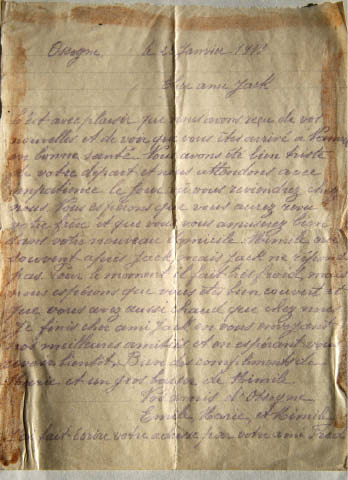 Ossogne, le 23 Janvier 1919
Cher ami Jack
C'est avec plaisir que nous avons reçu de vos
nouvelles et de voir que vous êtes arrivé à
en bonne santé. Nous avons été bien triste
de votre départ et nous attendons avec
impatience le jour où vous reviendrez chez
nous. Nous espérons que vous aurez
et que vous vous amuserez bien
dans votre nouveau domicile. Mimile crie
souvent après Jack mais Jack ne répond
pas. Pour le moment il fait très froid mais
nous espérons que vous êtes bien couvert et
que vous avez aussi chaud que chez nous.
Je finis cher ami Jack en vous envoyant
nos meilleures amitiés et en espérant vous
revoir bientôt. Bien de compliments de
Marie et un gros baiser de Mimile
Vos amis d'Ossogne
Emile Marie, et Mimile
fait écrire votre adresse par votre ami Fred